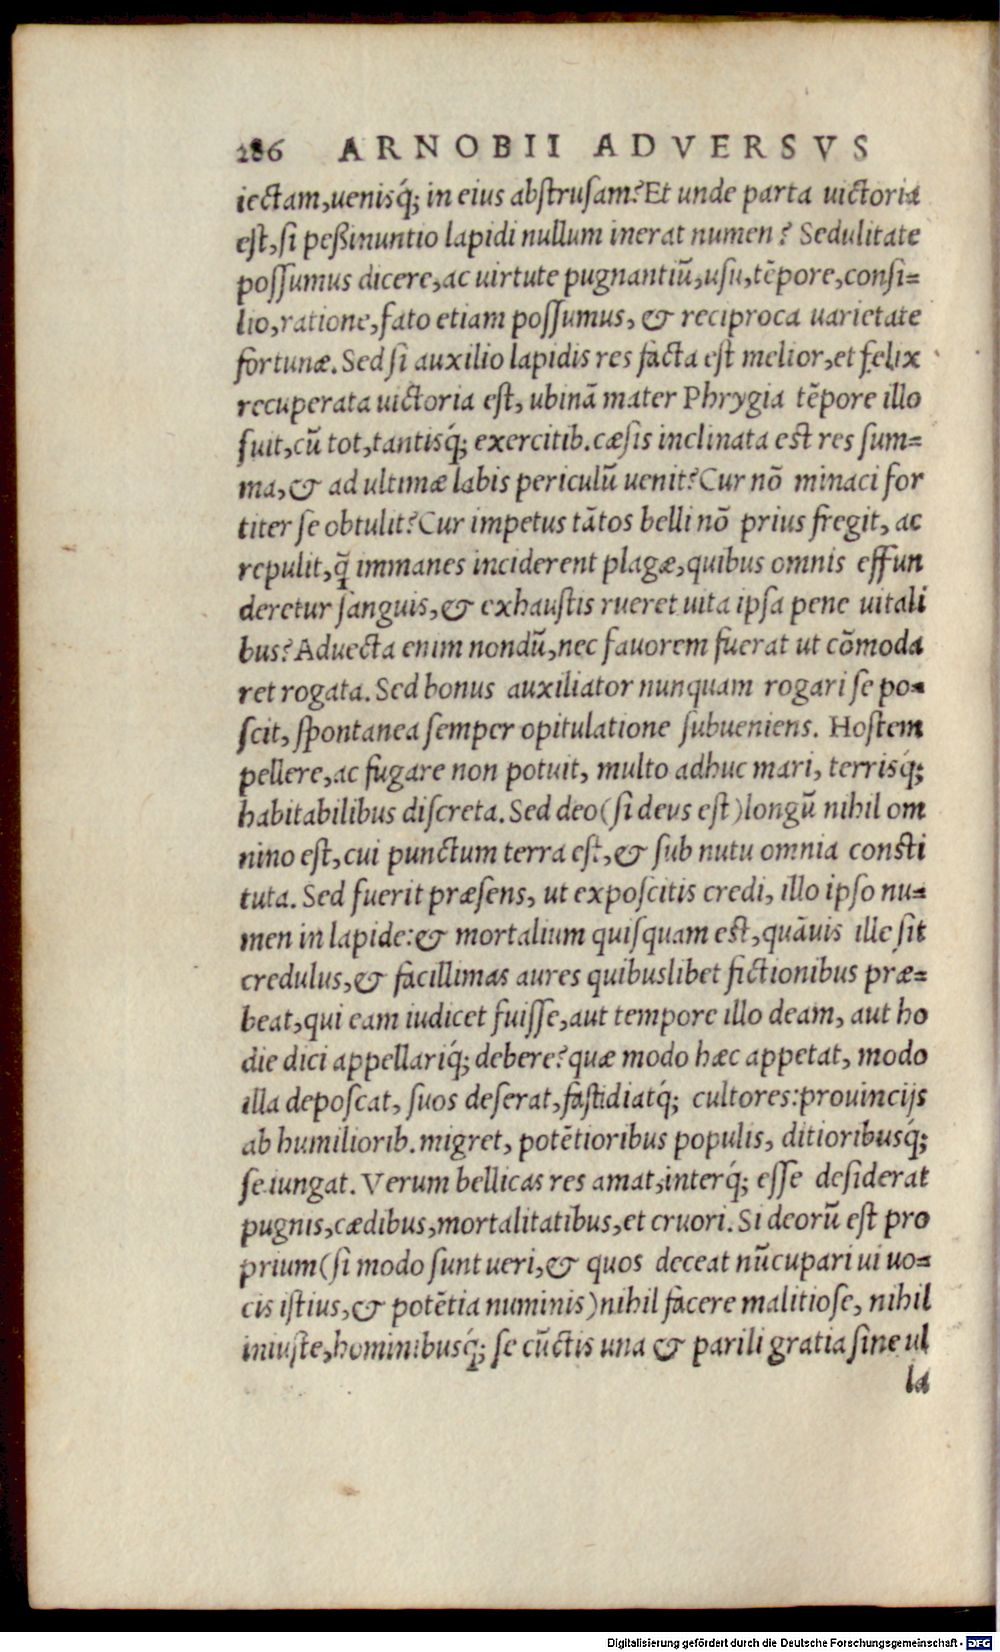 286 ARNOBII ADVERSVS
iectam,uenisq́; in eius abstrusam? Et unde parta uictoria
est, si peßinuntio lapidi nullum inerat numen? Sedulitate
possumus dicere, ac uirtute pugnantiũ, usu, tẽpore, consi=
lio, ratione, fato etiam possumus, & reciproca uarietate
fortunæ. Sed si auxilio lapidis res facta est melior, et felix
recuperata uictoria est, ubinã mater Phrygia tẽpore illo
fuit, cũ tot, tantisq́; exercitib. cæsis inclinata est res sum=
ma, & ad ultimæ labis periculũ uenit? Cur nõ minaci for
titer se obtulit? Cur impetus tãtos belli nõ prius fregit, ac
repulit, q̃ immanes inciderent plagæ, quibus omnis effun
deretur sanguis, & exhaustis rueret uita ipsa pene uitali
bus? Aduecta enim nondũ, nec fauorem fuerat ut cõmoda
ret rogata. Sed bonus auxiliator nunquam rogari se po=
scit, spontanea semper opitulatione subueniens. Hostem
pellere, ac fugare non potuit, multo adhuc mari, terrisq́;
habitabilibus discreta. Sed deo (si deus est) longũ nihil om
nino est, cui punctum terra est, & sub nutu omnia consti
tuta. Sed fuerit præsens, ut exposcitis credi, illo ipso nu=
men in lapide: & mortalium quisquam est, quãuis ille sit
credulus, & facillimas aures quibuslibet fictionibus præ=
beat, qui eam iudicet fuisse, aut tempore illo deam, aut ho
die dici appellariq́; debere? quæ modo hæc appetat, modo
illa deposcat, suos deserat, fastidiatq́; cultores: prouincijs
ab humiliorib. migret, potẽtioribus populis, ditioribusq́;
se iungat. Verum bellicas res amat, interq́; esse desiderat
pugnis, cædibus, mortalitatibus, et cruori. Si deorũ est pro
prium (si modo sunt ueri, & quos deceat nũcupari ui uo=
cis istius, & potẽtia numinis) nihil facere malitiose, nihil
iniuste, hominibusq́; se cũctis una & parili gratia sine ul
la
Digitalisierung gefördert durch die Deutsche Forschungsgemeinschaft - DFG